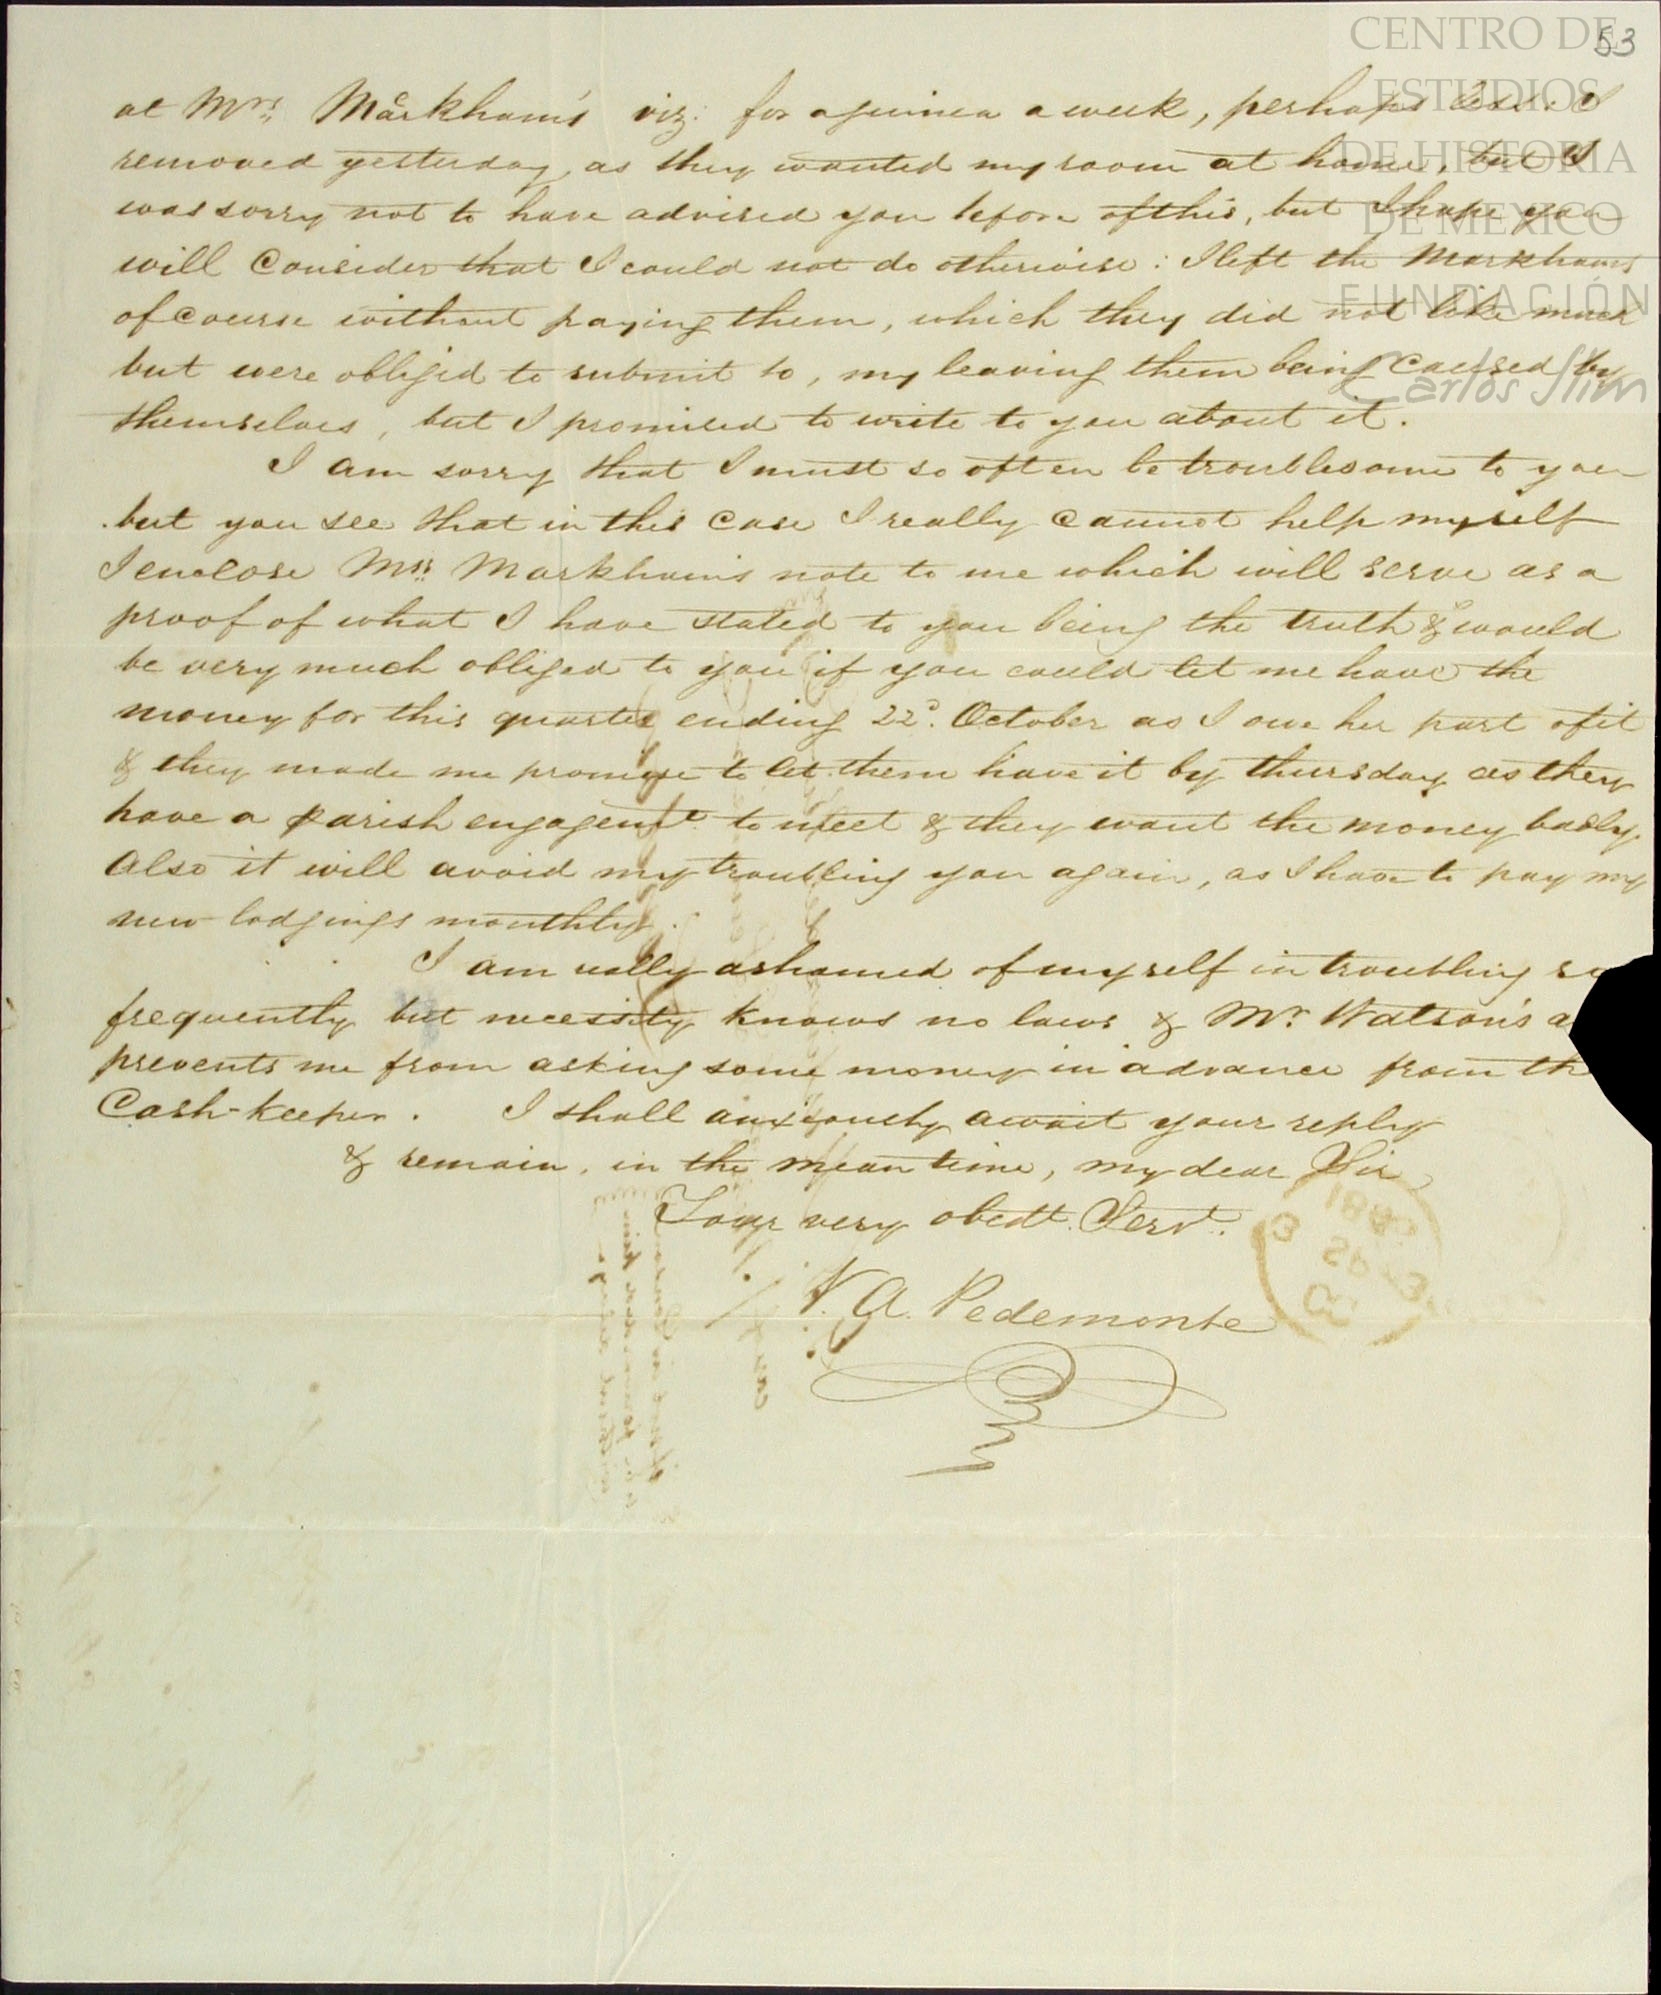 53
CENTRO DE
ESTUDIOS
DE HISTORIA
DE MEXICO
FUNDACIÓN
Carlos Slim
at Mrs. Markham's viz: for a guinea a week, perhaps less. I
removed yesterday, as they wanted my room at home, but I
was sorry not to have advised you before of this, but I hope you
will consider that I could not do otherwise: I left the Markhams
of course without paying them, which they did not like much
but were obliged to submit to, my leaving them being caused by
themselves, but I promised to write to you about it.
I am sorry that I must so often be troublesome to you
but you see that in this case I really cannot help myself
I enclose Mrs. Markham's note to me which will serve as a
proof of what I have stated to you being the truth & would
be very much obliged to you if you could let me have the
money for this quarter ending 22d. October as I owe her part of it
& they made me promise to let them have it by thursday as they
have a parish engagemt. to meet & they want the money badly.
Also it will avoid my troubling you again, as I have to pay my
new lodgings monthly.
I am really ashamed of myself in troubling
frequently but necessity knows no laws & Mr. Watson's
prevents me from asking some money in advance from
Cash-keeper. I shall anxiously await your reply
& remain, in the mean time, my dear Sir,
Your very obedt. Servt.
V. A. Pedemonte